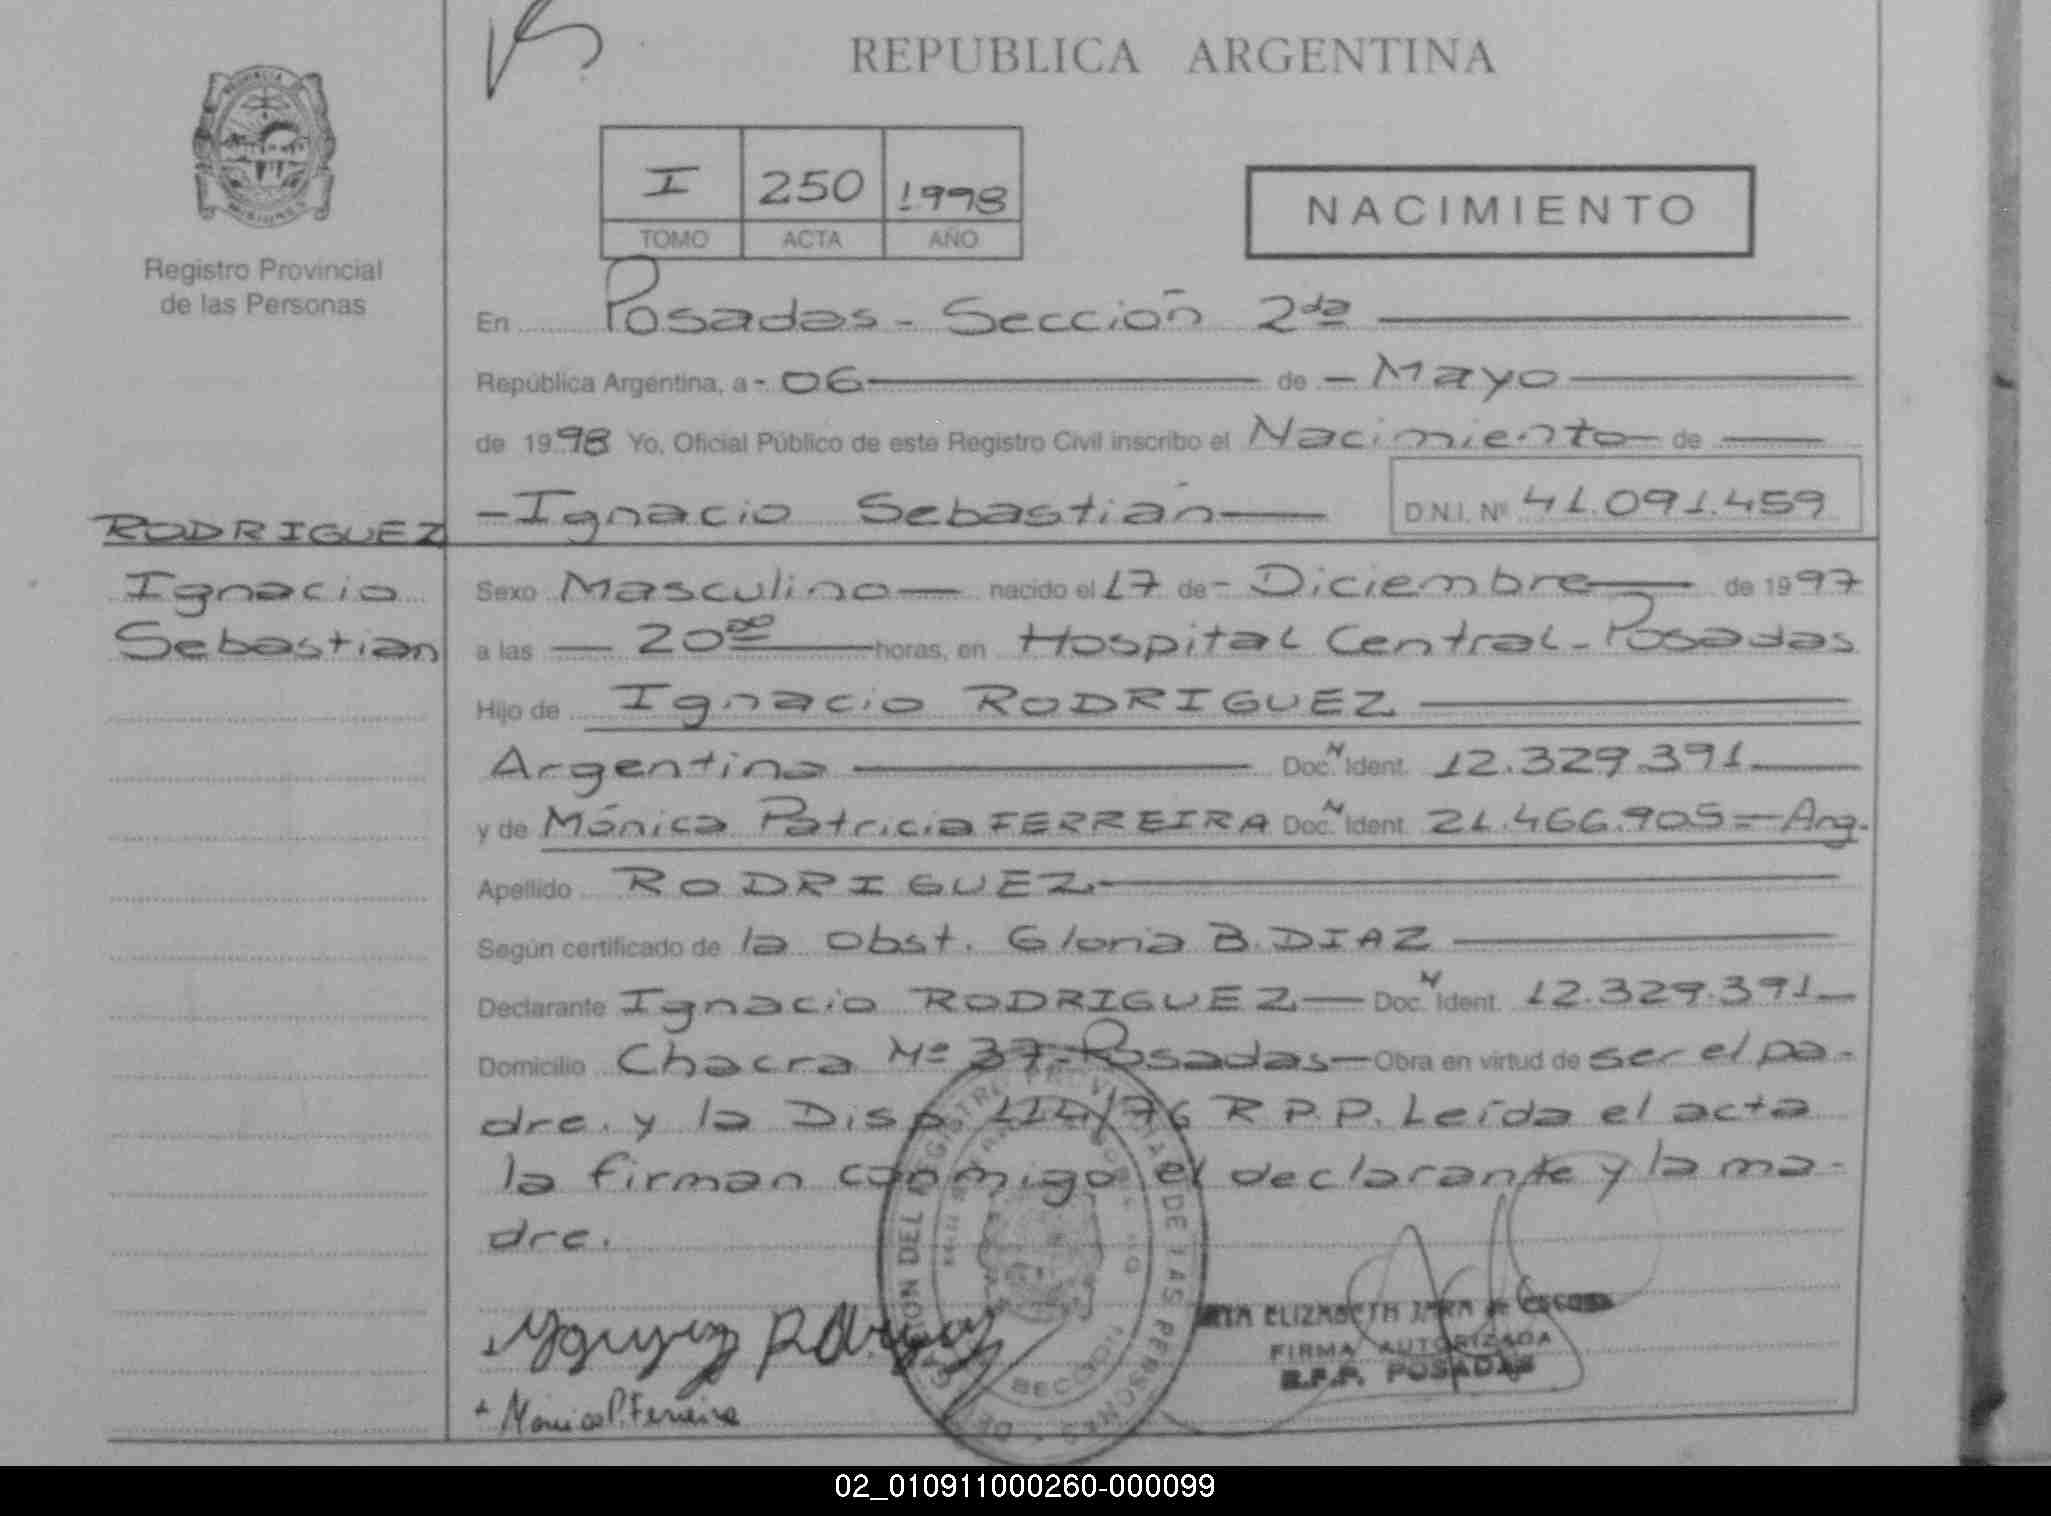 REPUBLICA ARGENTINA
PROVINCIA
MISIONES
Registro Provincial
de las Personas
I 250 1998
TOMO ACTA AÑO
NACIMIENTO
En Posadas - Sección 2da
República Argentina, a - 06 de - Mayo
de 1998 Yo, Oficial Público de este Registro Civil inscribo el Nacimiento de
- Ignacio Sebastián D.N.I. Nº 41.091.459
RODRIGUEZ
Ignacio
Sebastian
Sexo Masculino nacido el 17 de - Diciembre de 1997
a las 20 00 horas, en Hospital Central - Posadas
Hijo de Ignacio RODRIGUEZ
Argentino Doc. N Ident. 12.329.391
y de Mónica Patricia FERREIRA Doc. N Ident. 21.466.905 = Arg.
Apellido RODRIGUEZ
Según certificado de la Obst. Gloria B. DIAZ
Declarante Ignacio RODRIGUEZ Doc. N Ident. 12.329.391
Domicilio Chacra Nº 37 - Posadas Obra en virtud de ser el pa-
dre. y la Disp. 114/76 R.P.P. Leída el acta
la firman conmigo el declarante y la ma-
dre.
ELIZABETH JARA de
FIRMA AUTORIZADA
R.P.P. POSADAS
Monica P. Ferreira
DEL REGISTRO PROVINCIAL DE LAS PERSONAS
02_010911000260-000099